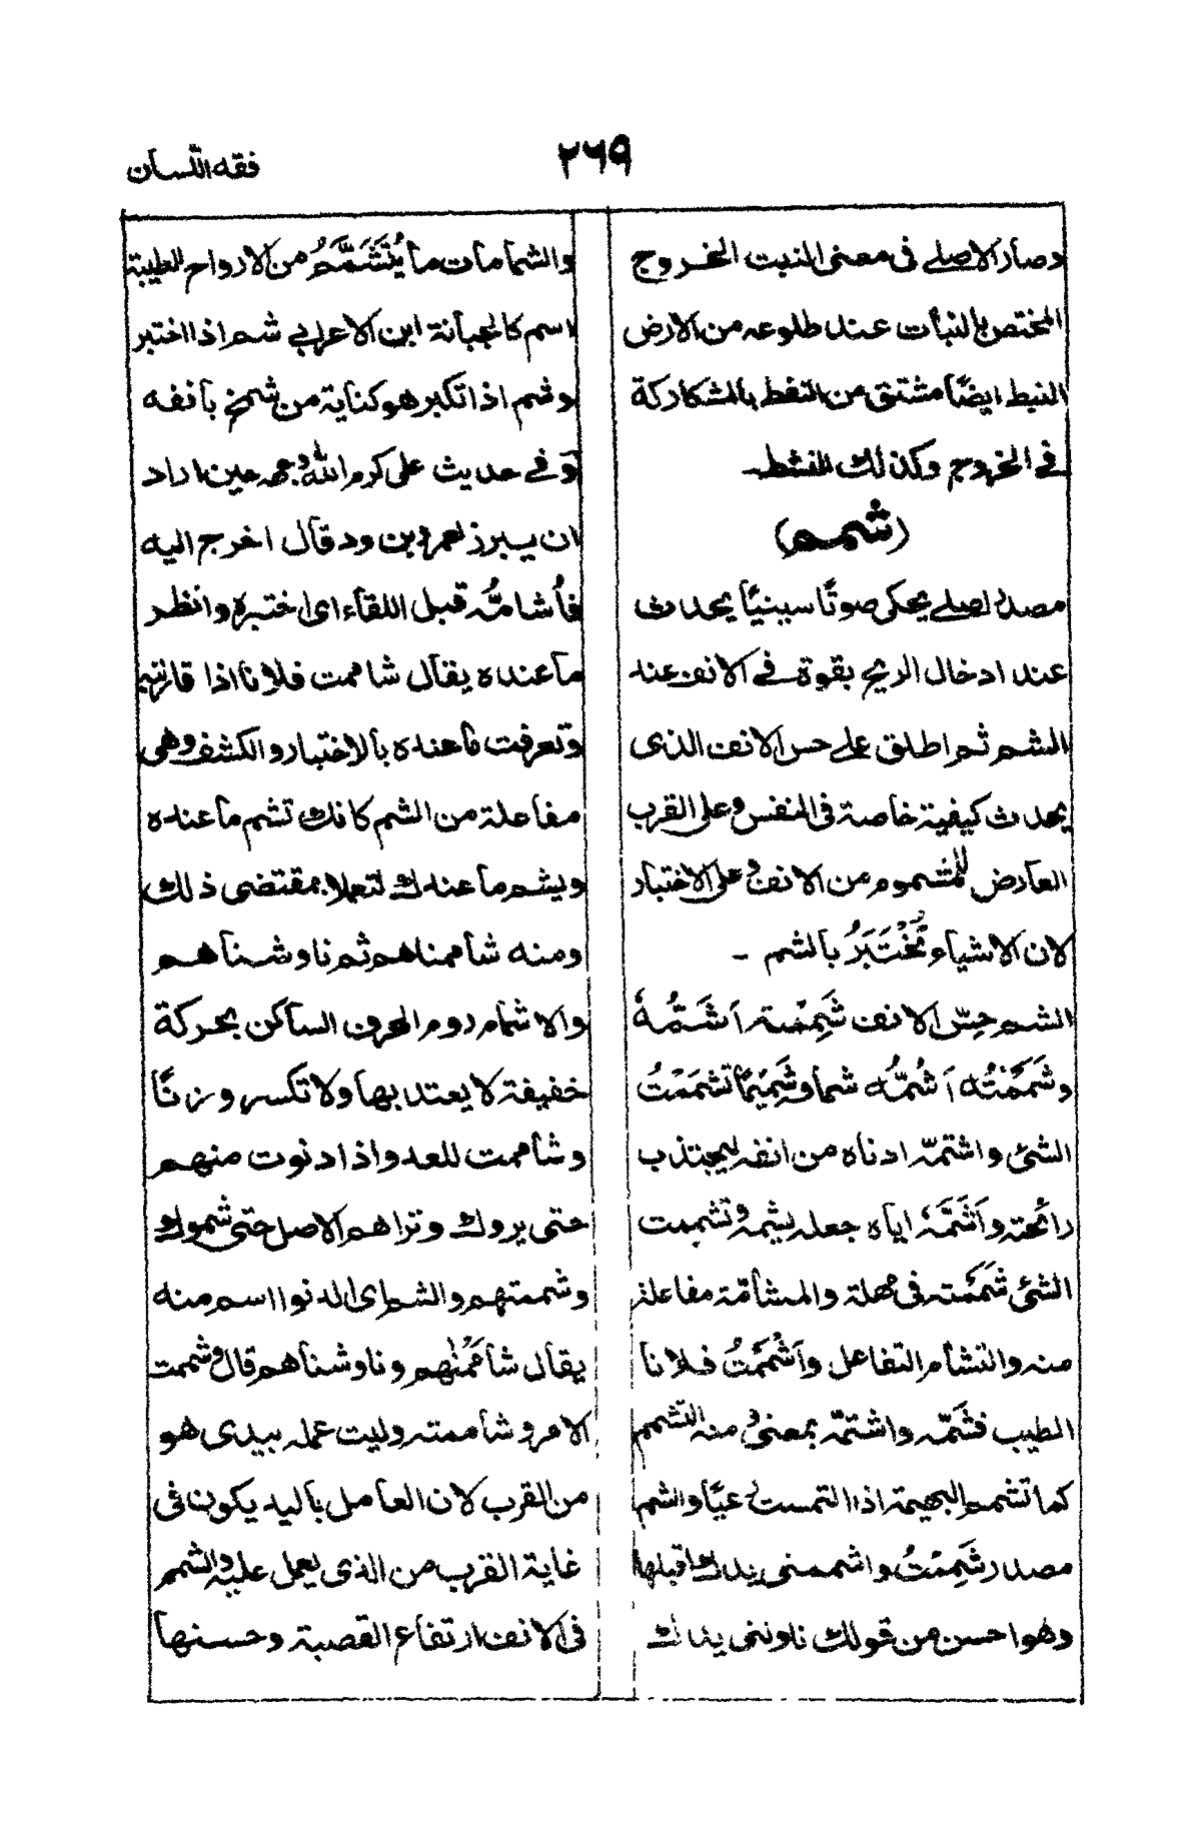 ٢٦٩
فقه اللسان
وصار الاصلے فی معنی المنبت الخروج
المختص بالنبات عند طلوعه من الارض
النبط ايضًا مشتق من النفط بالمشاركة
فے الخروج وكذلك النشط
(شمم)
مصدر اصلے يحكى صوتًا سينيًا يحدث
عند ادخال الريح بقوة فے الانف عند
الشم ثم اطلق علے حس الانف الذى
يحدث كيفية خاصة فى النفس وعلى القرب
العارض للمشموم من الانف وعلى الاختبار
لان الاشياء تُخْتَبَرُ بالشم ـ
الشم حِسّ الانف شَمِمْته اَشَمُّهٗ
وشَمَمْتُه اَشُمُّه شما وشَمِيْمًا تشمَمْتُ
الشئ واشتمّه ادناه من انفه ليجتذب
رائحته واَشَمَّهٗ اياه جعله يشمه وتشممت
الشئ شَمَمْته فى مهلة والمشامّة مفاعلة
منه والتشام التفاعل واَشْمَمْتُ فلانا
الطيب فشَمّه واشتمّه بمعنى ومنه التشمم
كما تشمم البهيمة اذا التمست رعيًا والشم
مصدر شَمِمْتُ واشممنى يدك اقبلها
وهو احسن من قولك ناولنى يدك
والشمامات ما يُتَشَمَّمُ من الارواح الطيبة
اسم كالجبانة ابن الاعرابے شم اذا اختبر
وشم اذا تكبر هو كناية من شمخ بانفه
وَفے حديث على كرم الله وجهه حين اراد
ان يبرز لعمرو بن ود قال اخرج اليه
فاُشامُّه قبل اللقاء اى اختبره وانظر
ما عنده يقال شاممت فلانا اذا قاربته
وتعرفت ما عنده بالاختبار والكشف وهى
مفاعلة من الشم كانك تشم ما عنده
ويشم ما عندك لتعملا بمقتضى ذلك
ومنه شاممناهم ثم ناوشناهم
والاشمام روم الحرف الساكن بحركة
خفيفة لا يعتد بها ولا تكسر وزنًا
وشاممت للعدو اذا دنوت منهم
حتى يروك وتراهم الاصل حتى شموك
وشممتهم والشم اى الدنو اسم منه
يقال شامَمْنٰهم وناوشناهم قال وشممت
الامر وشاممته وليت عمله بيدى هو
من القرب لان العامل باليد يكون فى
غاية القرب من الذى يعمل عليه والشمم
فى الانف ارتفاع القصبة وحسنها